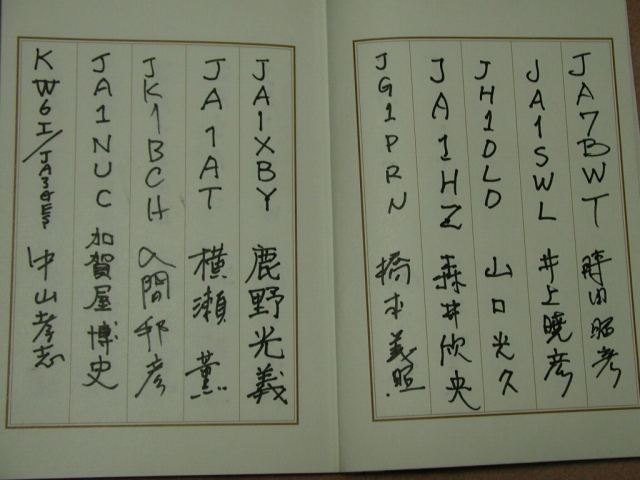 JA7BWT 時田昭彦
JA1SWL 井上暁彦
JH1DLD 山口光久
JA1HZ 森井欣央
JG1PRN 橋本義照
JA1XBY 鹿野光義
JA1AT 横瀬薫
JK1BCH 入間邦彦
JA1NUC 加賀屋博史
KW6I/ 中山孝志